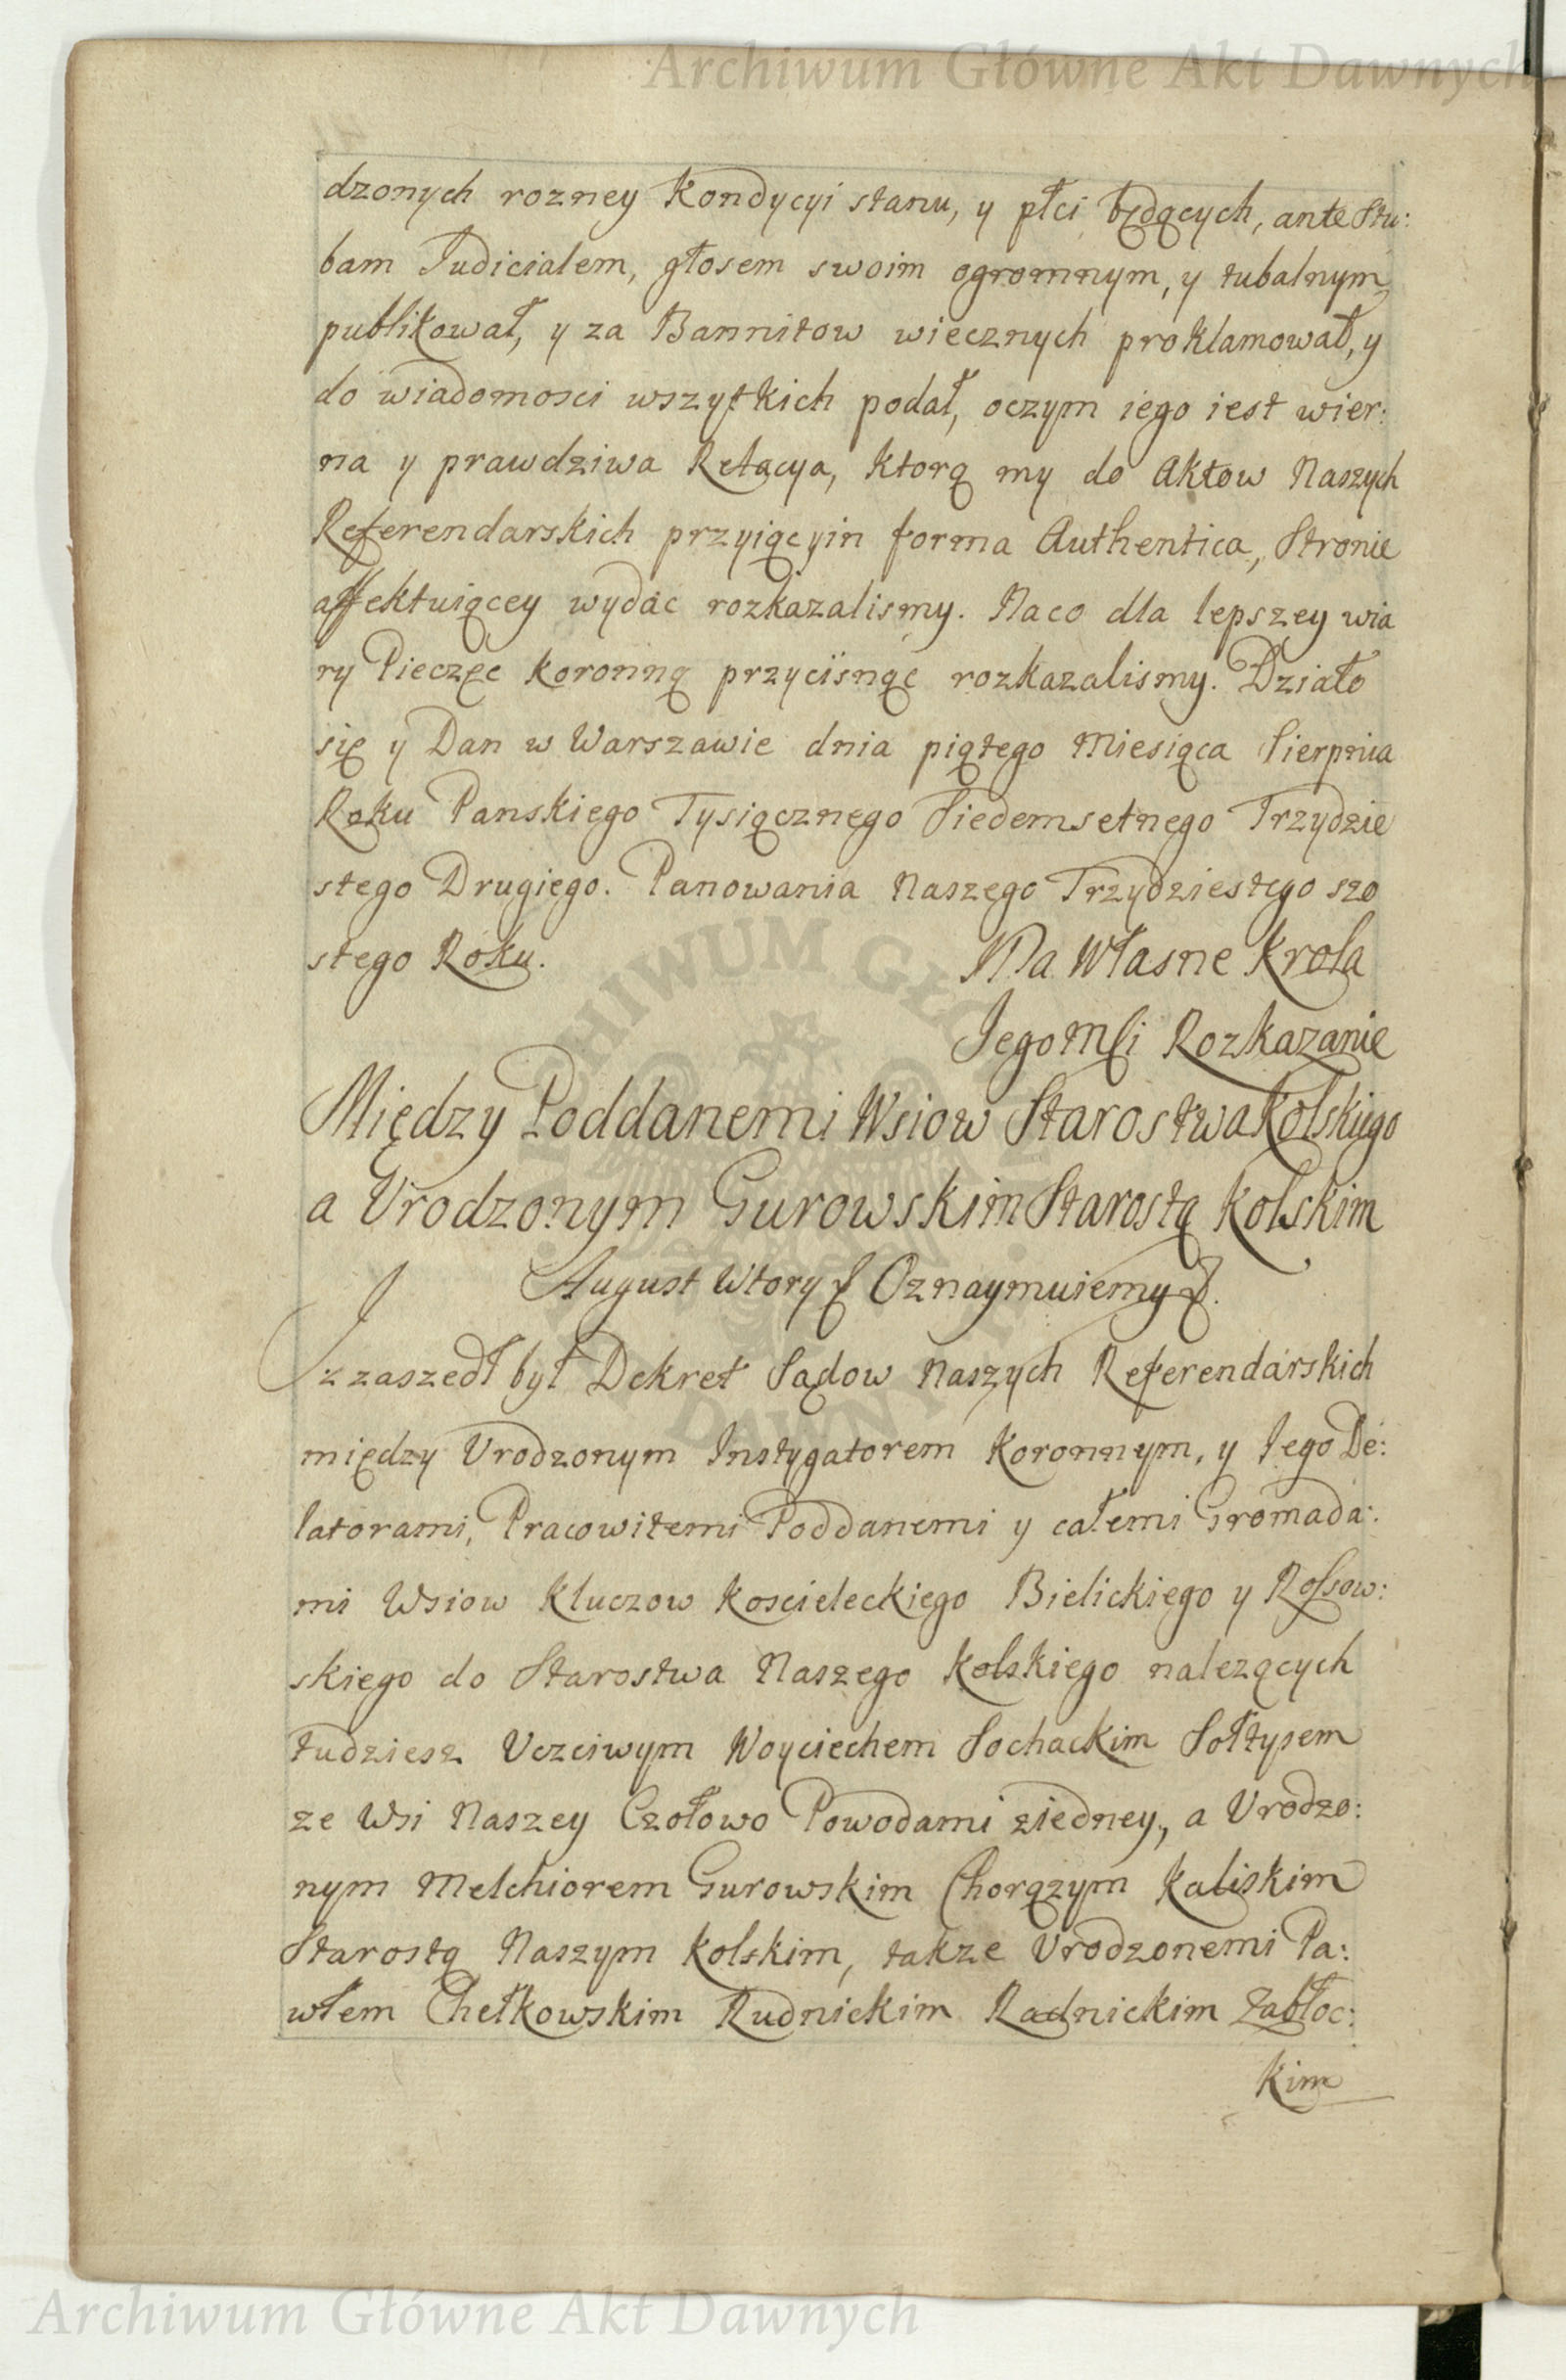 Archiwum Główne Akt Dawnych
dzonych rozney Kondycyi stanu, y płci będących, ante Stu:
bam Judicialem, głosem swoim ogromnym, y tubalnym,
publikował, y za Bannitow wiecznych proklamował, y
do wiadomosci wszytkich podał, oczym iego iest wier:
na y prawdziwa Relacya, ktorą my do Aktow Naszych
Referendarskich przyiącyin forma Authentica, Stronie
affektuiącey wydac rozkazalismy. Naco dla lepszey wia
ry Pieczęc koronną przycisnąc rozkazalismy. Działo
się y Dan w Warszawie dnia piątego Miesiąca Sierpnia
Roku Panskiego Tysiącznego Siedemsetnego Trzydzie
stego Drugiego. Panowania Naszego Trzydziestego szo
stego Roku. Na Własne Krola
Jego Mſci Rozkazanie
Między Poddanemi Wsiow Starostwa Kolskiego
a Vrodzonym Gurowskim Starostą Kolskim
August Wtory & Oznaymuiemy &.
Iz zaszedł był Dekret Sądow Naszych Referendarskich
między Vrodzonym Instygatorem Koronnym, y Jego De:
latorami, Pracowitemi Poddanemi y całemi Gromada:
mi Wsiow Kluczow Koscieleckiego Bielickiego y Roſsow:
skiego do Starostwa Naszego Kolskiego nalezących
tudziesz Vczciwym Woyciechem Sochackim Sołtysem
ze Wsi Naszey Czołowo Powodami ziedney, a Vrodzo:
nym Melchiorem Gurowskim Chorązym Kaliskim
Starostą Naszym Kolskim, takze Vrodzonemi Pa:
włem Chełkowskim Rudnickim Radnickim Zabłoc:
kim
Archiwum Główne Akt Dawnych